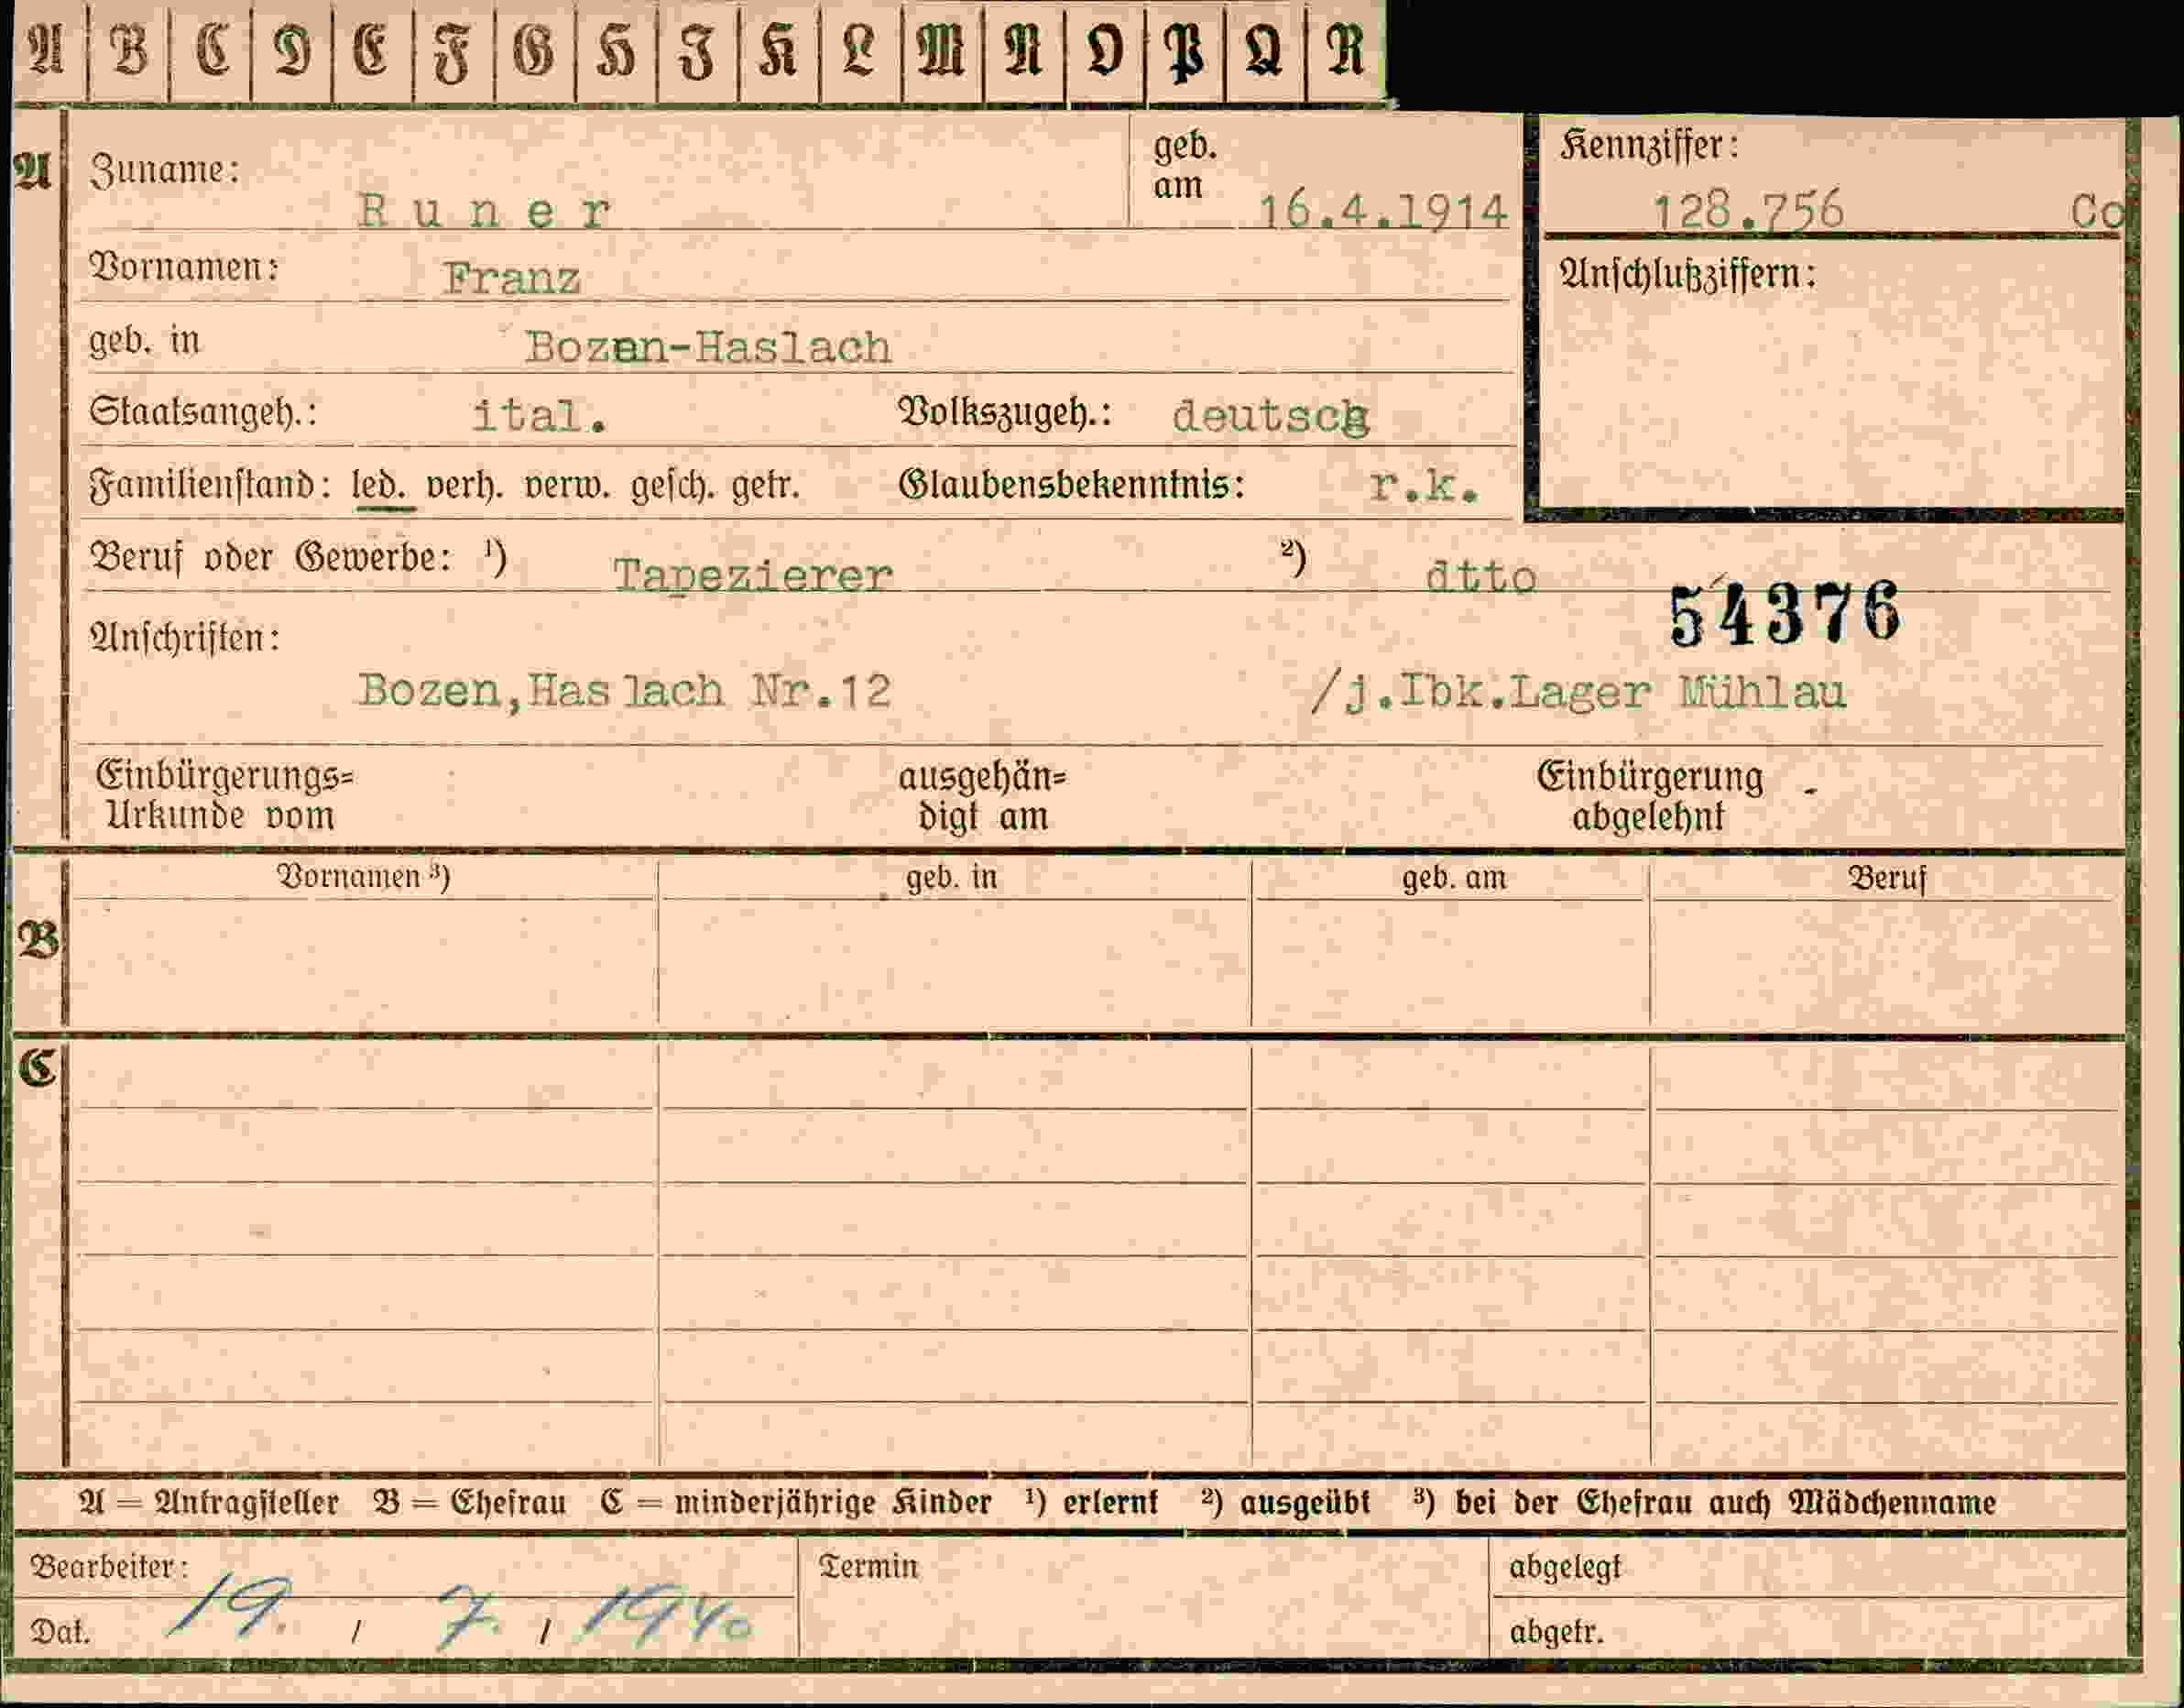 A B C D E F G H I K L M N O P Q R
A Zuname: Runer geb. am 16.4.1914 Kennziffer: 128.756 Co
Vornamen: Franz Anschlußziffern:
geb. in Bozen-Haslach
Staatsangeh.: ital. Volkszugeh.: deutsch
Familienstand: led. verh. verw. gesch. getr. Glaubensbekenntnis: r.k.
Beruf oder Gewerbe: ¹) Tapezierer ²) dtto
54376
Anschriften:
Bozen,Haslach Nr.12 /j.Ibk.Lager Mühlau
Einbürgerungs= ausgehän= Einbürgerung
Urkunde vom digt am abgelehnt
Vornamen ³) geb. in geb. am Beruf
B
C
A = Antragsteller B = Ehefrau C = minderjährige Kinder ¹) erlernt ²) ausgeübt ³) bei der Ehefrau auch Mädchenname
Bearbeiter: Termin abgelegt
Dat. 19. / 7. / 1940 abgetr.